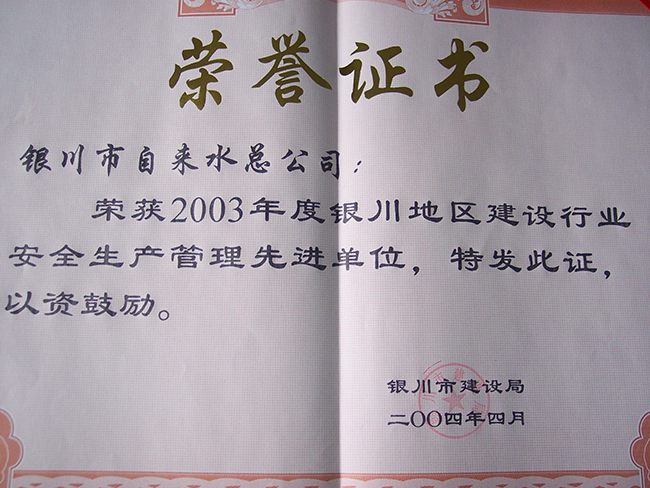 荣誉证书
银川市自来水总公司：
荣获2003年度银川地区建设行业
安全生产管理先进单位，特发此证，
以资鼓励。
银川市建设局
二〇〇四年四月